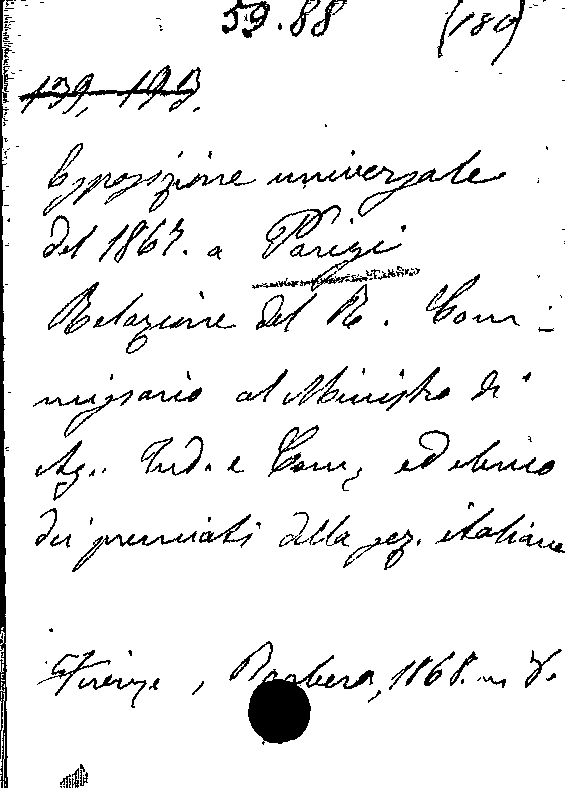 59.88 (180)
139, 193.
Esposizione universale
del 1867. a Parigi
Relazione del R. Com-
missario al Ministro di
Ag. Ind. e Com, ed elenco
dei premiati della sez. italiana
Firenze, Barbera, 1868. in 8.